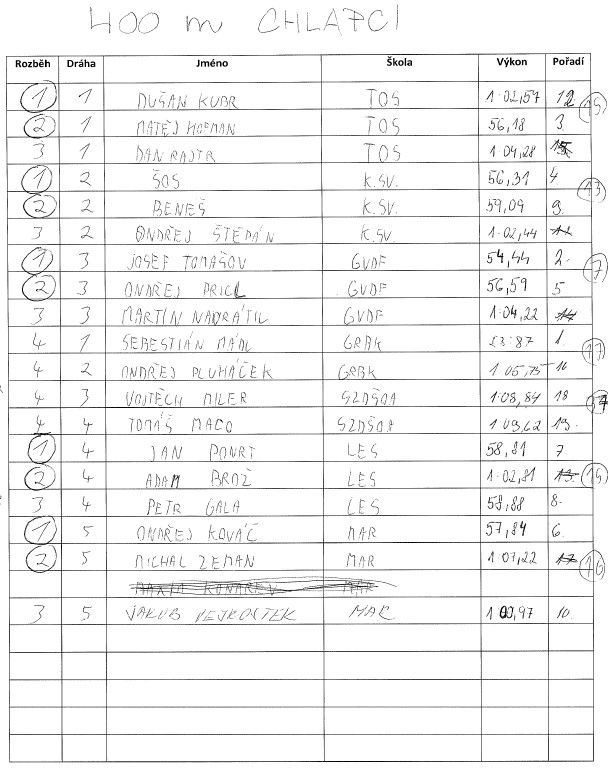 400 m CHLAPCI
Rozběh Dráha Jméno Škola Výkon Pořadí
1 1 DUŠAN KUBR TOS 1:02,57 12. 15
2 1 MATĚJ HOFMAN TOS 56,18 3.
3 1 DAN RAJTR TOS 1:04,28 15.
1 2 ŠOS K.SV. 56,31 4 13
2 2 BENEŠ K.SV. 59,09 9.
3 2 ONDŘEJ ŠTĚPÁN K.SV. 1:02,44 11.
1 3 JOSEF TOMAŠOV GVDF 54,44 2. 7
2 3 ONDŘEJ PRICL GVDF 56,59 5
3 3 MARTIN NAVRÁTIL GVDF 1:04,22 14.
4 1 SEBESTIÁN MÁDL GRBK 53:87 1. 17
4 2 ONDŘEJ PLUHÁČEK GRBK 1 05,75 16
4 3 VOJTĚCH MILER SZDŠOA 1:08,84 18
4 4 TOMÁŠ MACO SZDŠOA 1 09,62 19.
1 4 JAN LES 58,81 7
2 4 ADAM BROŽ LES 1:02,81 13. 15
3 4 PETR GALA LES 58,88 8.
1 5 ONDŘEJ KOVÁČ MAR 57,84 6.
2 5 MICHAL ZEMAN MAR 1:07,22 17. 16
3 5 JAKUB MAR 1 00,97 10